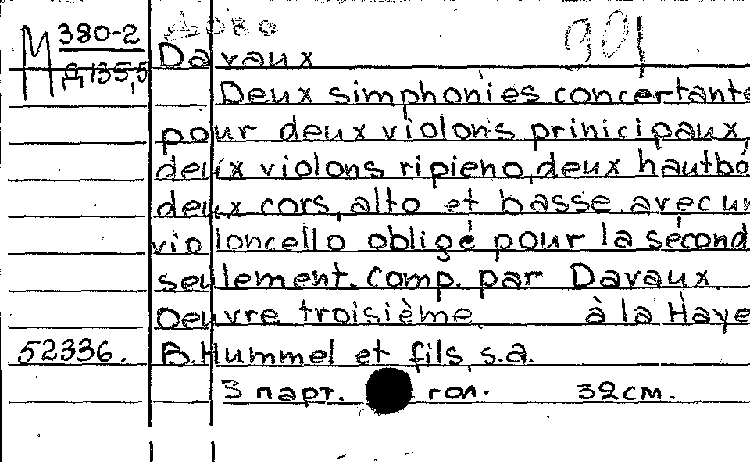 M 380-2
Д,135,5
901
Davaux
Deux simphonies concertante
pour deux violons prinicipaux,
deux violons ripieno, deux hautbo
deux cors, alto et basse avec un
violoncello obligé pour la second
seulement. Comp. par Davaux.
Oeuvre troisième. à la Haye
52336. B. Hummel et fils, s.a.
3 парт. гол. 32 см.